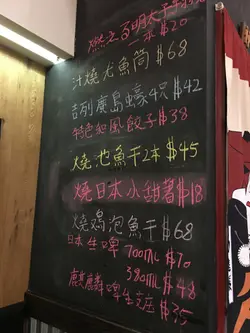 燃之百明太子
一条$20
汁燒尤魚筒$68
吉列廣島蠔4只$42
特色和風餃子$38
燒池魚干2本$45
燒日本小甜薯$18
燒鷄泡魚干$68
日本生啤 700ML $70
380ML $48
麒麟啤
$35